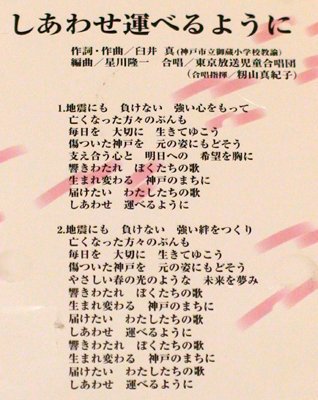 しあわせ運べるように
作詞・作曲／臼井 真(神戸市立御蔵小学校教諭)
編曲／星川隆一 合唱／東京放送児童合唱団
(合唱指揮／籾山真紀子)
1.地震にも 負けない 強い心をもって
亡くなった方々のぶんも
毎日を 大切に 生きてゆこう
傷ついた神戸を 元の姿にもどそう
支え合う心と 明日への 希望を胸に
響きわたれ ぼくたちの歌
生まれ変わる 神戸のまちに
届けたい わたしたちの歌
しあわせ 運べるように
2.地震にも 負けない 強い絆をつくり
亡くなった方々のぶんも
毎日を 大切に 生きてゆこう
傷ついた神戸を 元の姿にもどそう
やさしい春の光のような 未来を夢み
響きわたれ ぼくたちの歌
生まれ変わる 神戸のまちに
届けたい わたしたちの歌
しあわせ 運べるように
響きわたれ ぼくたちの歌
生まれ変わる 神戸のまちに
届けたい わたしたちの歌
しあわせ 運べるように